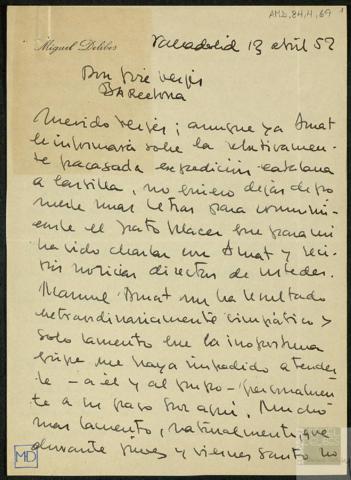 AMD,84,4,69
Miguel Delibes
Valladolid 13 abril 52
Don José Vergés
Barcelona
Querido Vergés; aunque ya Amat
le informaría sobre la relativamen-
te fracasada expedición catalana
a Castilla, no quiero dejar de po-
nerle unas letras para comuni-
carle el grato placer que para mí
ha sido charlar con Amat y reci-
bir noticias directas de ustedes.
Manuel Amat me ha resultado
extraordinariamente simpático y
solo lamento que la inoportuna
gripe me haya impedido atender-
le - a él y al grupo - personalmen-
te a su paso por aquí. Mucho
más lamento, naturalmente, que
durante jueves y viernes santo no
MD